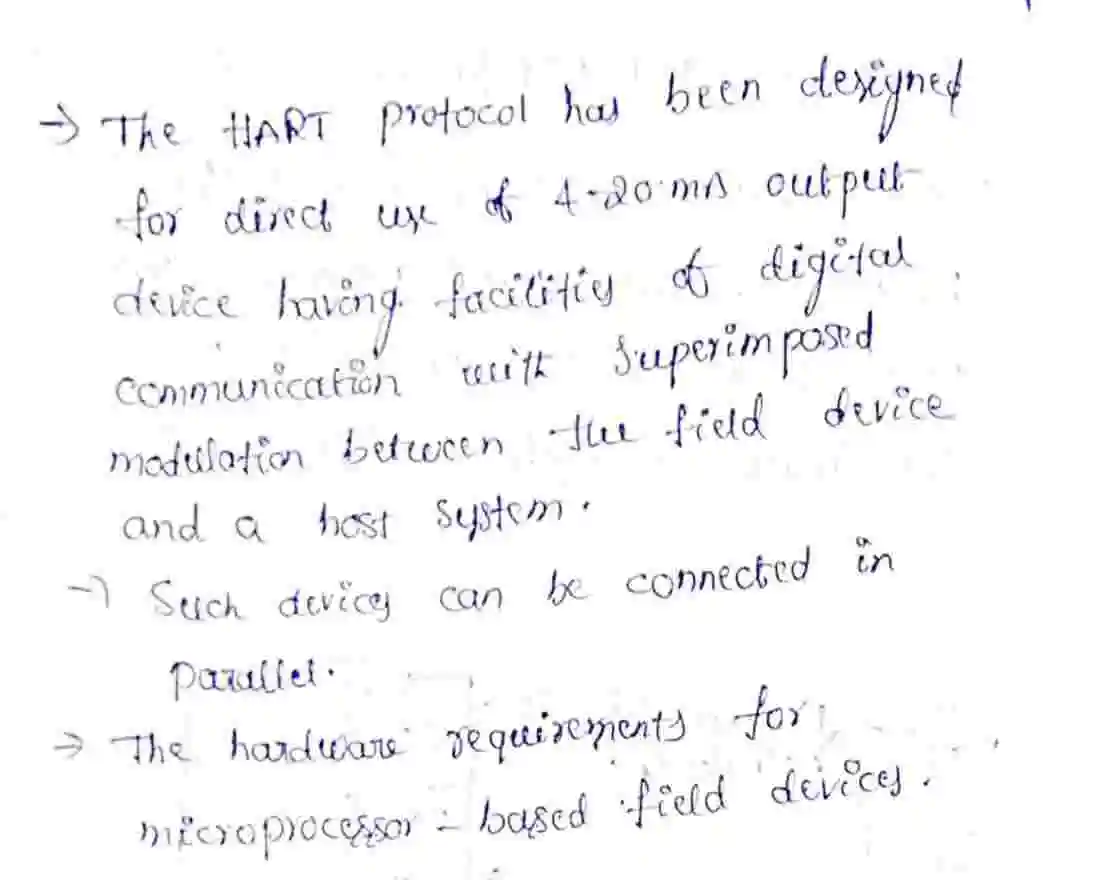 → The HART protocol has been designed
for direct use of 4-20 mA output
device having facilities of digital
communication with superimposed
modulation between the field device
and a host system.
→ Such devices can be connected in
parallel.
→ The hardware requirements for
microprocessor - based field devices.